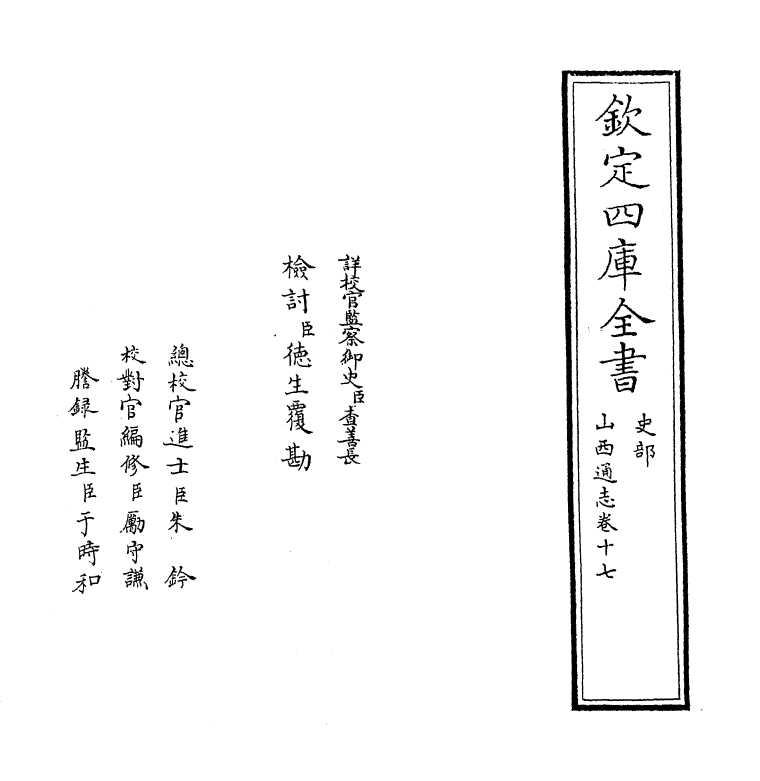 欽定四庫全書
史部
山西通志卷十七
詳校官監察御史臣查善長
檢討臣德生覆勘
總校官進士臣朱鈐
校對官編修臣勵守謙
謄録監生臣于時和